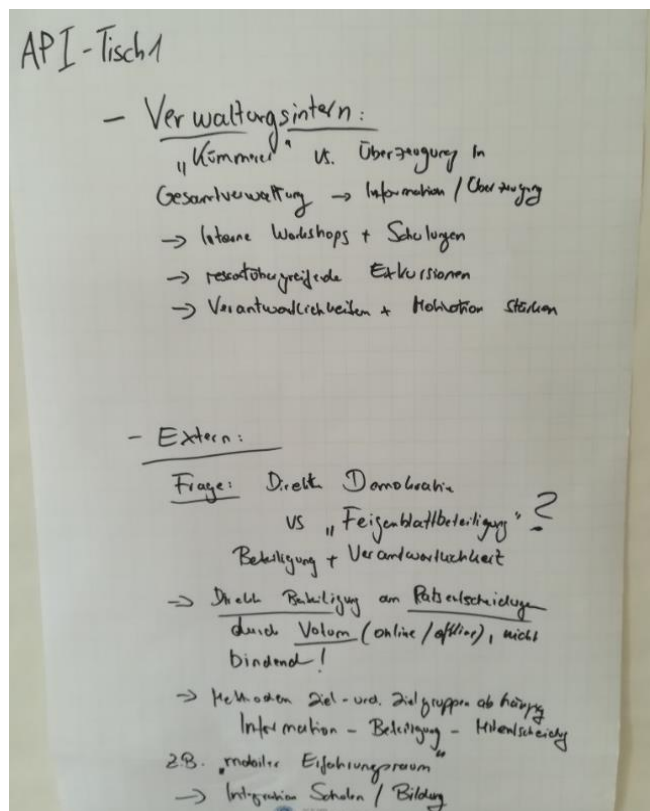 API-Tisch 1
- Verwaltungsintern:
„Kümmerer" vs. Überzeugung in
Gesamtverwaltung → Information / Überzeugung
→ Interne Workshops + Schulungen
→ ressortübergreifende Exkursionen
→ Verantwortlichkeiten + Motivation stärken
- Extern:
Frage: Direkte Demokratie
vs „Feigenblattbeteiligung" ?
Beteiligung + Verantwortlichkeit
→ Direkte Beteiligung an Ratsentscheidungen
durch Votum (online / offline), nicht
bindend!
→ Methoden Ziel- und Zielgruppen abhängig
Information - Beteiligung - Mitentscheidg
z.B. „mobiler Erfahrungsraum"
→ Integration Schulen / Bildung